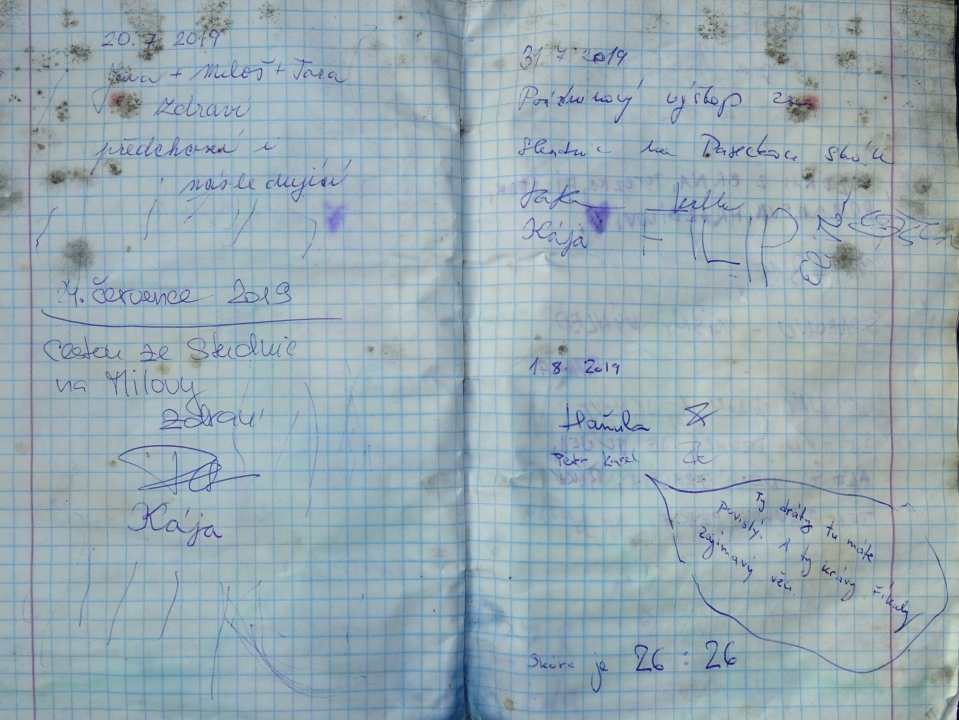 20.7 2019
Jana + Miloš + Tára
zdraví
předchozí i
následující
4. července 2019
Cestou ze Studnic
na Milovy
zdraví
Kája
31.7 2019
výstup z
Studnic na Paseckou skálu
Kája
FILIP
1.8. 2019
Hanula
Petr Karel
Ty dráty tu máte
povislý. A ty krávy říkaly
zajímavý věci.
Skóre je 26 : 26